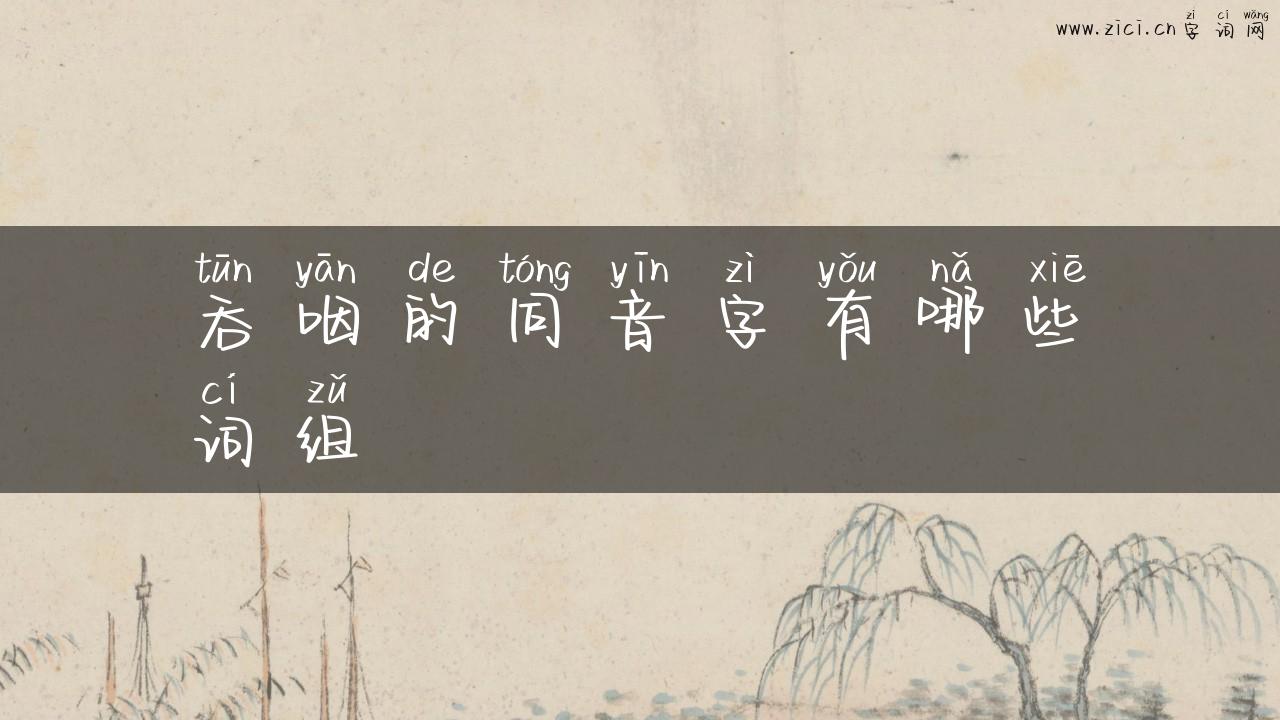 zì cí wǎng
www.zici.cn 字词网
tūn yān de tóng yīn zì yǒu nǎ xiē
吞咽的同音字有哪些
cí zǔ
词组